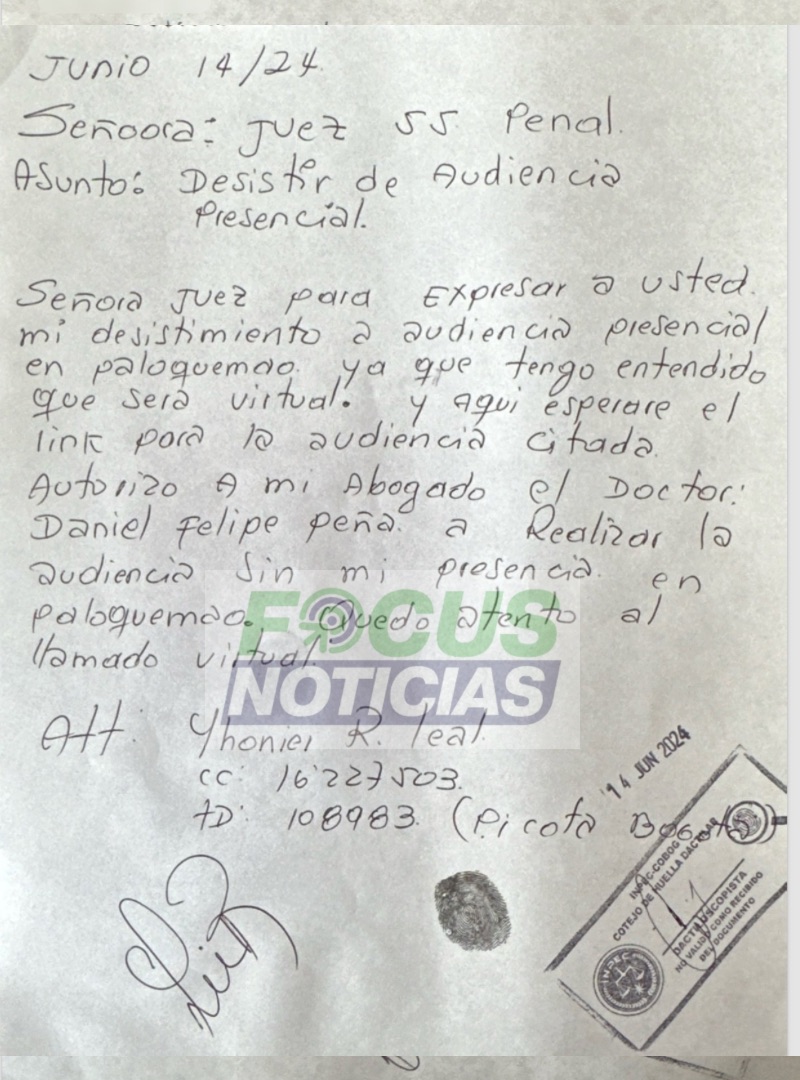 Junio 14/24.
Señoora: Juez 55 Penal.
Asunto: Desistir de Audiencia
Presencial.
Señora Juez para Expresar a usted.
mi desistimiento a audiencia presencial
en paloquemao. ya que tengo entendido
que será virtual. y aqui esperare el
link para la audiencia citada.
Autorizo A mi Abogado el Doctor:
Daniel Felipe Peña. a Realizar la
audiencia Sin mi presencia. en
paloquemao. Quedo atento al
llamado virtual.
FOCUS
NOTICIAS
Att: Yhonier R. leal.
cc: 16'227503.
TD: 108983. (Picota Bogotá)
14 JUN 2024
INPEC-COBOG
COTEJO DE HUELLA DACTILAR
DACTILOSCOPISTA
NO VALIDO COMO RECIBIDO
DEL DOCUMENTO
INPEC